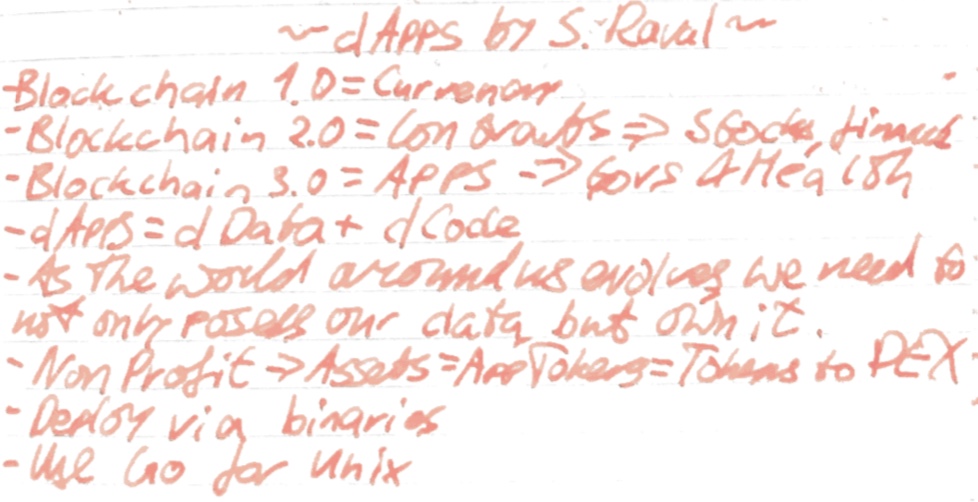 ~ dApps by S. Raval ~
- Blockchain 1.0 = Currency
- Blockchain 2.0 = Contracts => Stocks,
- Blockchain 3.0 = APPS => Govs & Health
- dApps = dData + dCode
- As the world around us evolves we need to
not only posess our data, but own it.
- Non Profit => Assets = AppTokens = Tokens to DEX
- Deploy via binaries
- Use Go for Unix